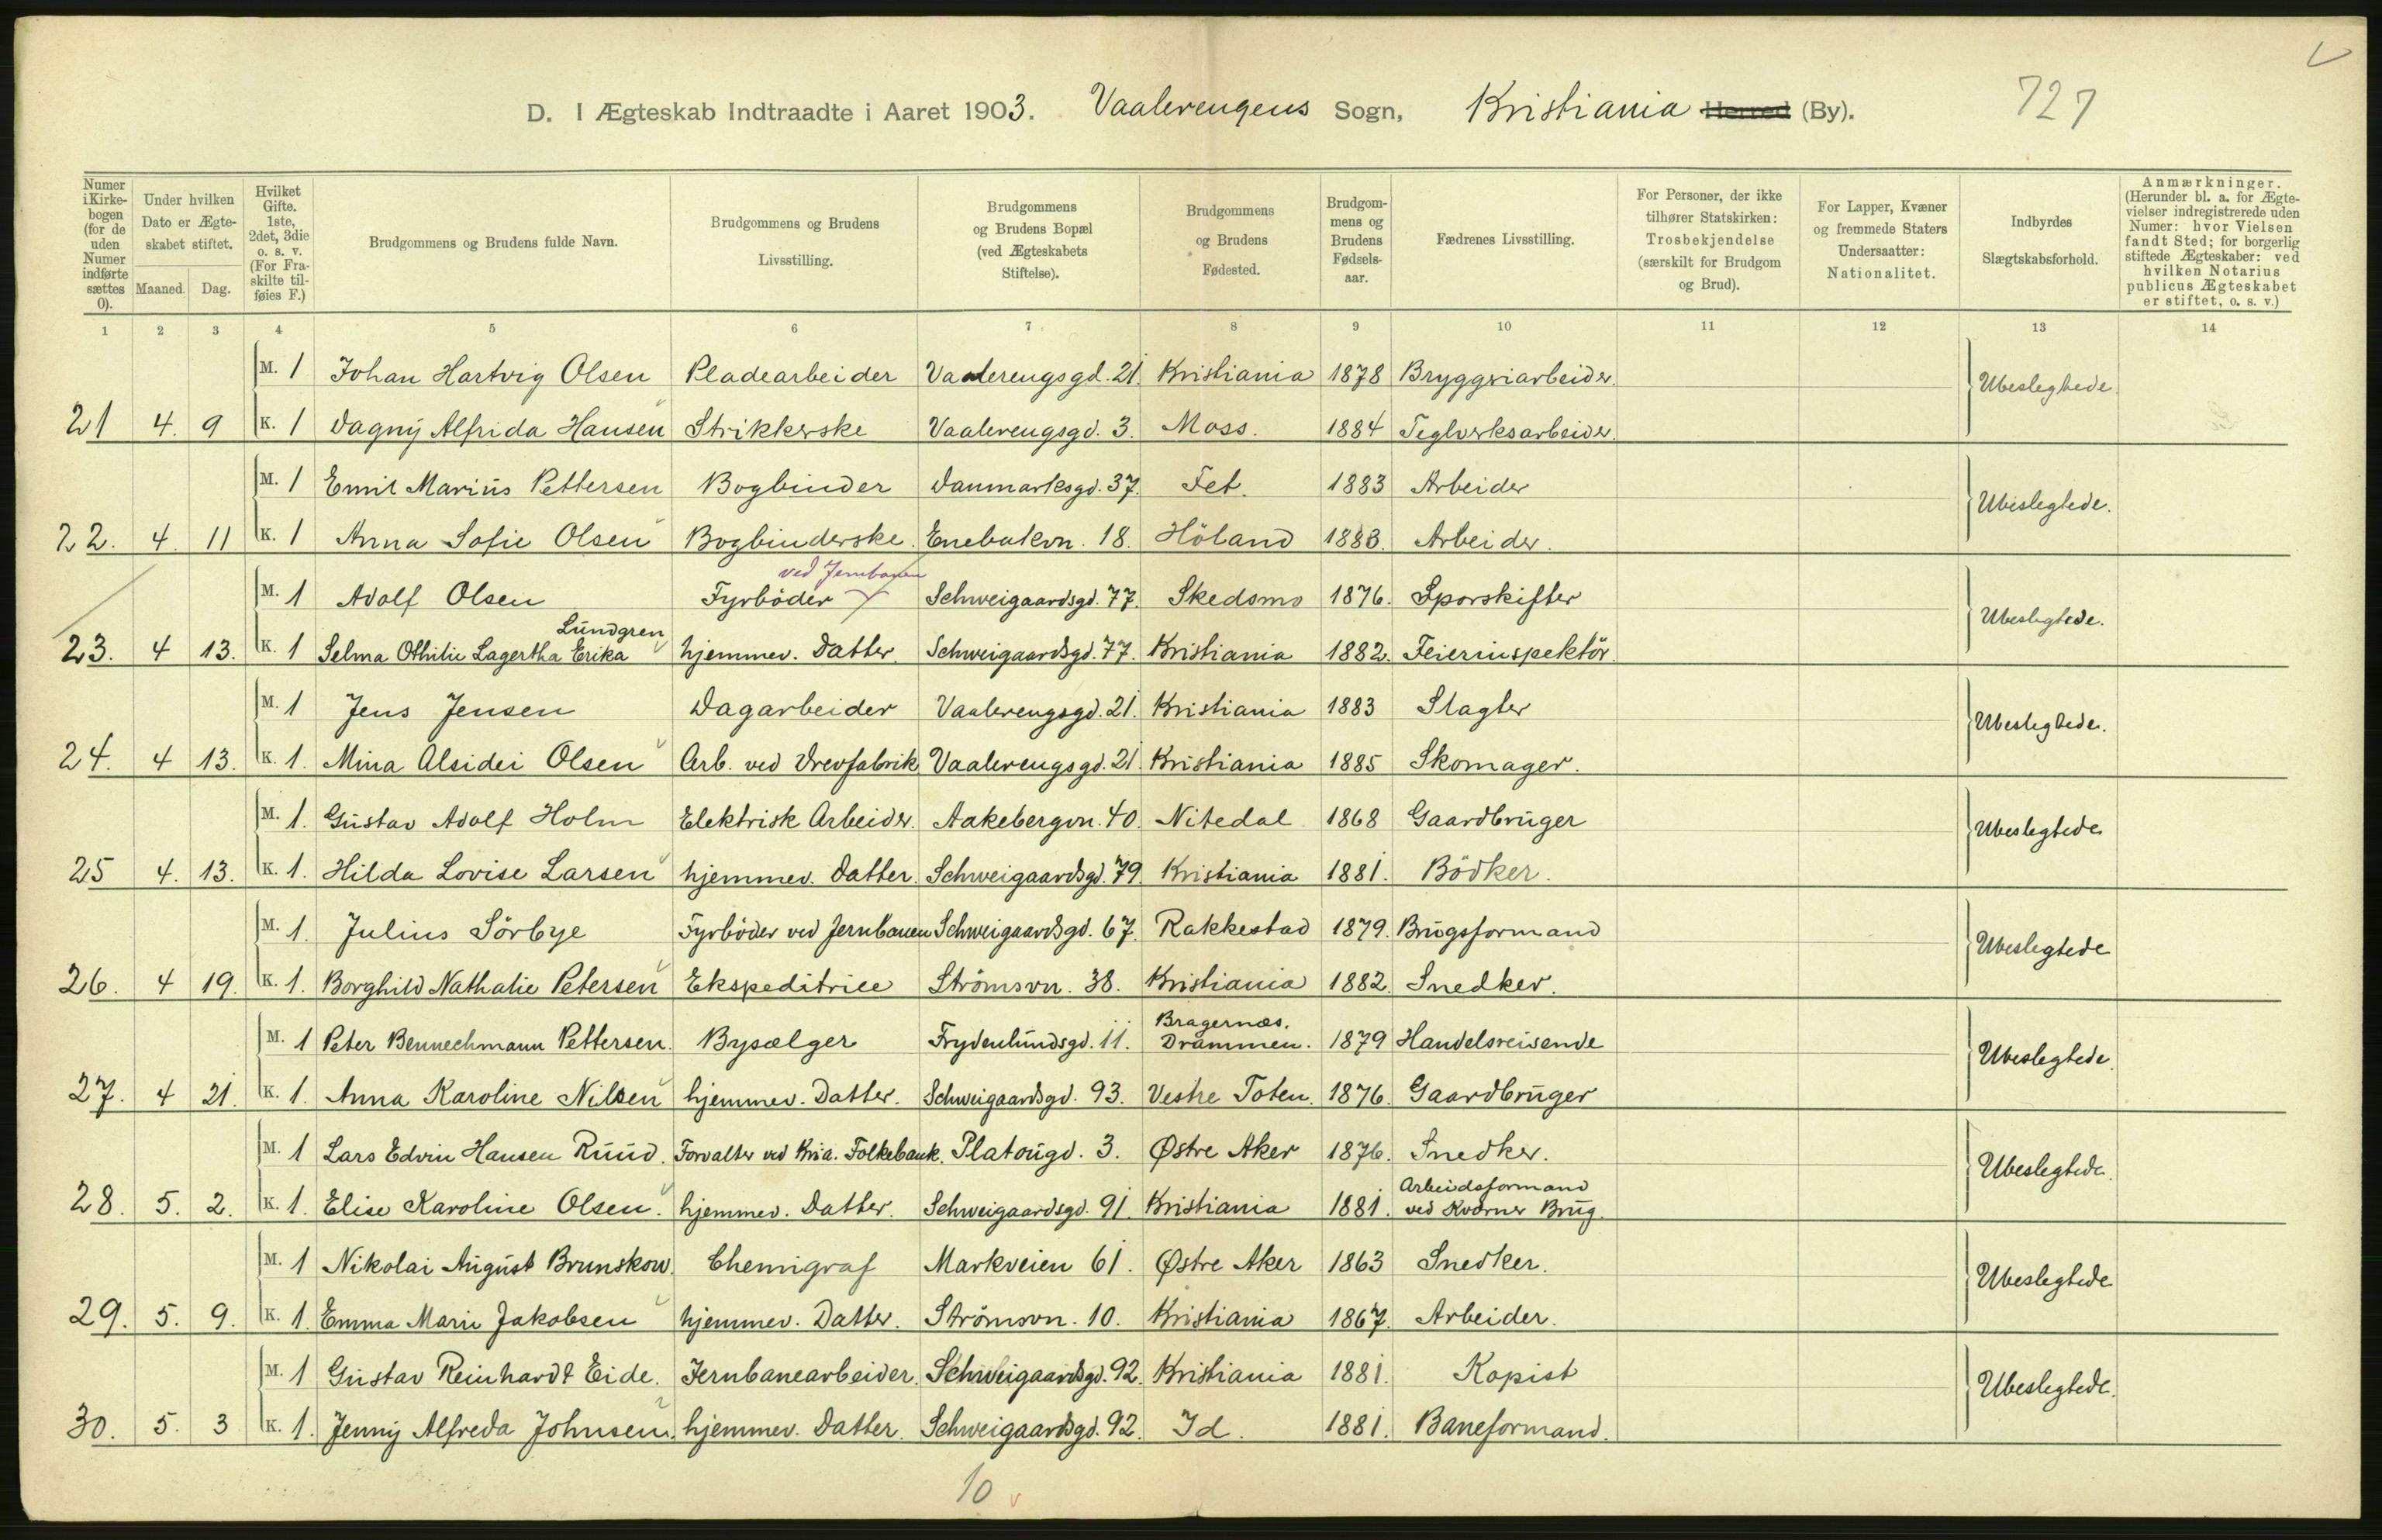 727
D. I Ægteskab Indtraadte i Aaret 1903. Vaalerengens Sogn, Kristiania Herred (By).
Numer i Kirke-bogen (for de uden Numer indførte sættes 0).
Under hvilken Dato er Ægte-skabet stiftet.
Maaned. Dag.
Hvilket Gifte. 1ste, 2det, 3die o. s. v. (For Fra-skilte til-føies F.)
Brudgommens og Brudens fulde Navn.
Brudgommens og Brudens Livsstilling.
Brudgommens og Brudens Bopæl (ved Ægteskabets Stiftelse).
Brudgommens og Brudens Fødested.
Brudgom-mens og Brudens Fødsels-aar.
Fædrenes Livsstilling.
For Personer, der ikke tilhører Statskirken: Trosbekjendelse (særskilt for Brudgom og Brud).
For Lapper, Kvæner og fremmede Staters Undersaatter: Nationalitet.
Indbyrdes Slægtskabsforhold.
Anmærkninger. (Herunder bl. a. for Ægte-vielser indregistrerede uden Numer: hvor Vielsen fandt Sted; for borgerlig stiftede Ægteskaber: ved hvilken Notarius publicus Ægteskabet er stiftet, o. s. v.)
1 2 3 4 5 6 7 8 9 10 11 12 13 14
M. 1 Johan Hartvig Olsen Pladearbeider Vaalerengsgd. 21. Kristiania 1878 Bryggriarbeider. Ubeslegtede
21 4. 9 K. 1 Dagny Alfrida Hansen Strikkerske Vaalerengsgd. 3. Moss. 1884 Teglverksarbeider.
M. 1 Emil Marius Pettersen Bogbinder Danmarksgd. 37. Fet. 1883 Arbeider Ubeslegtede.
22. 4. 11 K. 1 Anna Sofie Olsen Bogbinderske. Enebakvn. 18. Höland 1883. Arbeider.
ved Jernbanen
M. 1 Adolf Olsen Fyrböder Schweigaardsgd. 77. Skedsmo 1876. Sporskifter Ubeslegtede.
Lundgren
23. 4 13. K. 1 Selma Othilie Lagertha Erika hjemmev. Datter. Schweigaardsgd. 77. Kristiania 1882. Feierinspektör.
M. 1 Jens Jensen Dagarbeider Vaalerengsgd. 21. Kristiania 1883 Slagter Ubeslegtede.
24. 4 13. K. 1. Mina Alsidei Olsen Arb. ved Drevfabrik Vaalerengsgd. 21. Kristiania 1885 Skomager.
M. 1. Gustav Adolf Holm Elektrisk Arbeider. Aakebergvn. 40. Nitedal 1868 Gaardbruger Ubeslegtede
25 4. 13. K. 1. Hilda Lovise Larsen hjemmev. Datter. Schweigaardsgd. 79. Kristiania 1881. Bödker.
M. 1. Julius Sörbye Fyrböder ved Jernbanen Schweigaardsgd. 67. Rakkestad 1879. Brugsformand Ubeslegtede
26. 4 19. K. 1. Borghild Nathalie Petersen Ekspeditrice Strömsvn. 38. Kristiania 1882. Snedker.
Bragernæs.
M. 1 Peter Bennechmann Pettersen. Bysælger Frydenlundsgd. 11. Drammen. 1879 Handelsreisende Ubeslegtede.
27. 4 21. K. 1. Anna Karoline Nilsen hjemmev. Datter. Schweigaardsgd. 93. Vestre Toten. 1876. Gaardbruger
M. 1 Lars Edvin Hansen Ruud. Forvalter ved Kria. Folkebank. Platougd. 3. Østre Aker 1876. Snedker. Ubeslegtede.
Arbeidsformand
28. 5. 2. K. 1. Elise Karoline Olsen. hjemmev. Datter. Schweigaardsgd. 91. Kristiania 1881. ved Kværner Brug.
M. 1 Nikolai August Brunskow. Chemigraf Markveien 61. Østre Aker 1863 Snedker. Ubeslegtede
29. 5. 9. K. 1. Emma Marie Jakobsen hjemmev. Datter. Strömsvn. 10. Kristiania 1867. Arbeider.
M. 1 Gustav Reinhardt Eide. Jernbanearbeider. Schweigaardsgd. 92. Kristiania 1881. Kopist Ubeslegtede.
30. 5. 3 K. 1. Jenny Alfreda Johnsen. hjemmev. Datter. Schweigaardsgd. 92. Id. 1881. Baneformand.
10